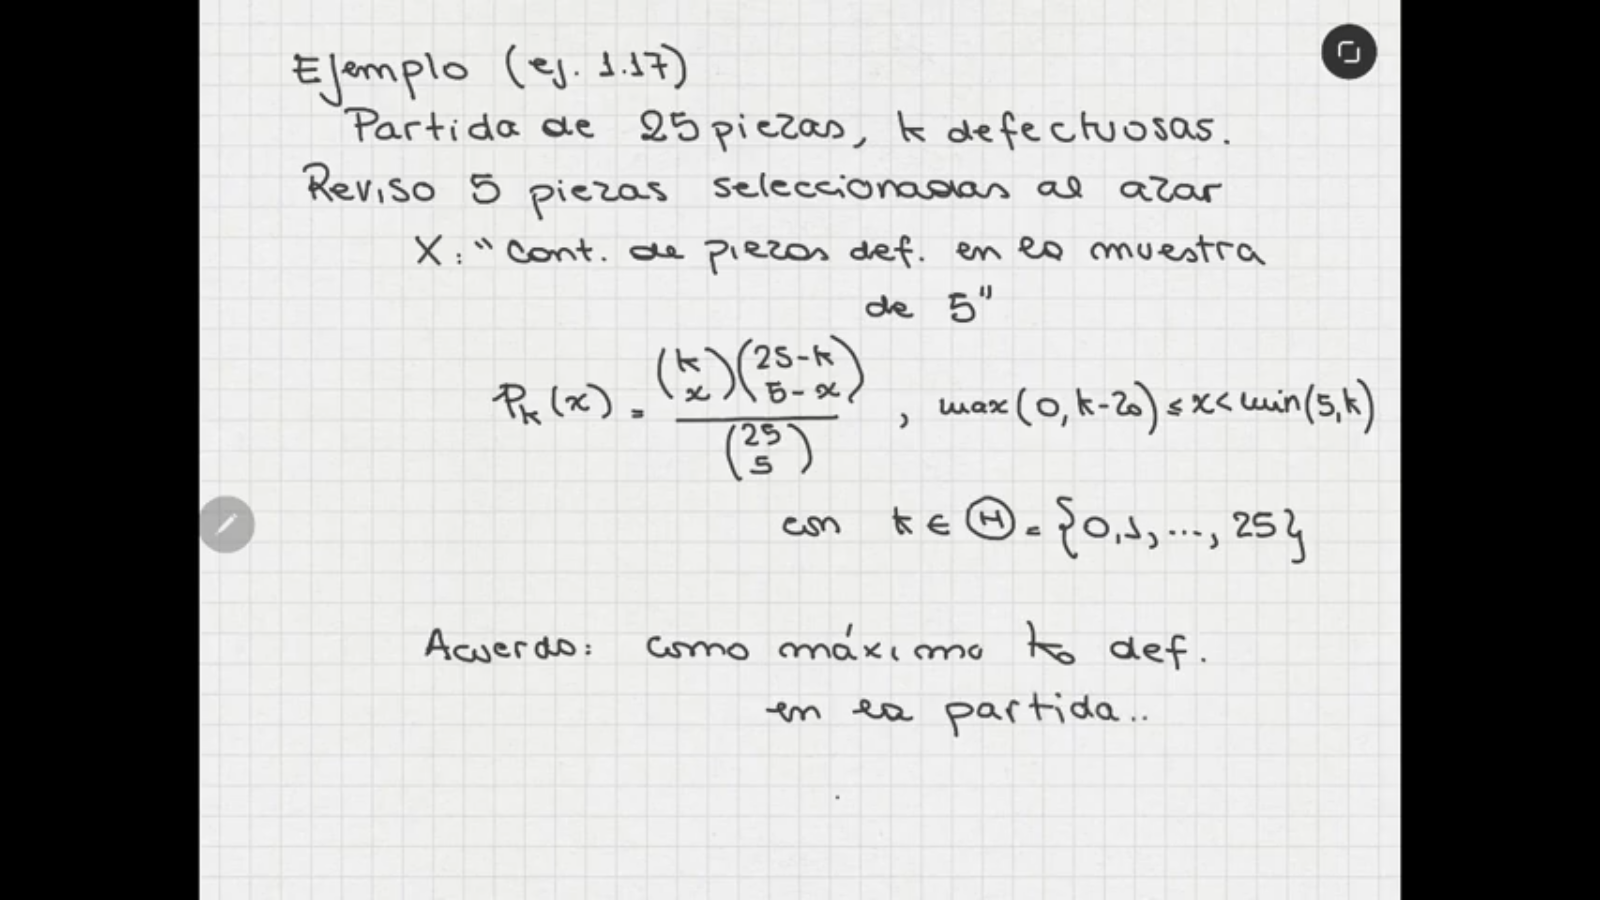 Ejemplo (ej. 1.17)
Partida de 25 piezas, k defectuosas.
Reviso 5 piezas seleccionadas al azar
X: "Cant. de piezas def. en la muestra
de 5"
P_k(x) = \frac{\binom{k}{x}\binom{25-k}{5-x}}{\binom{25}{5}}, max(0, k-20) ≤ x < min(5, k)
con k ∈ Θ = {0, 1, ..., 25}
Acuerdo: como máximo k₀ def.
en la partida..